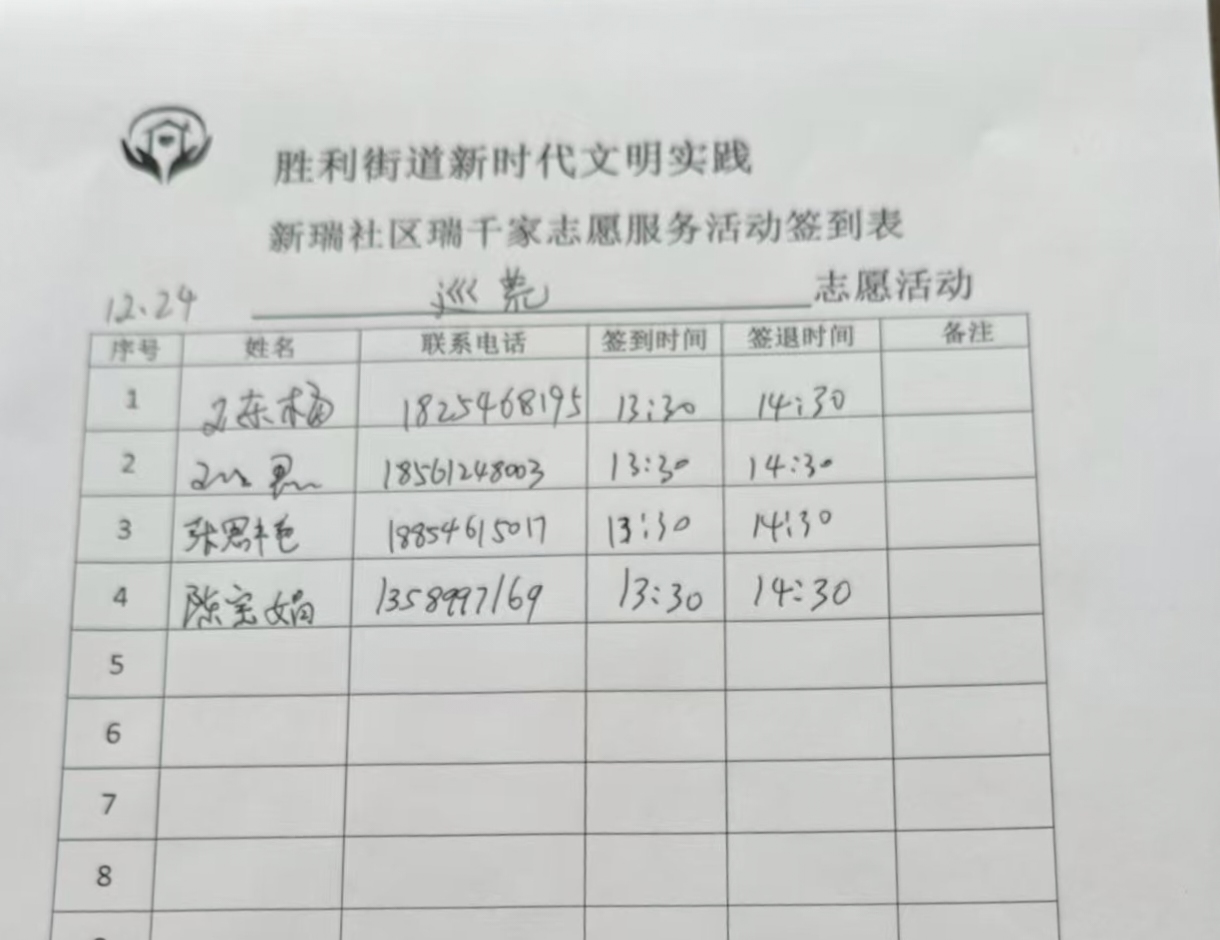 胜利街道新时代文明实践
新瑞社区瑞千家志愿服务活动签到表
12.24 巡荒 志愿活动
序号 姓名 联系电话 签到时间 签退时间 备注
1 1825468195 13:30 14:30
2 18561248003 13:30 14:30
3 18854615017 13:30 14:30
4 陈宝娟 1358997169 13:30 14:30
5
6
7
8